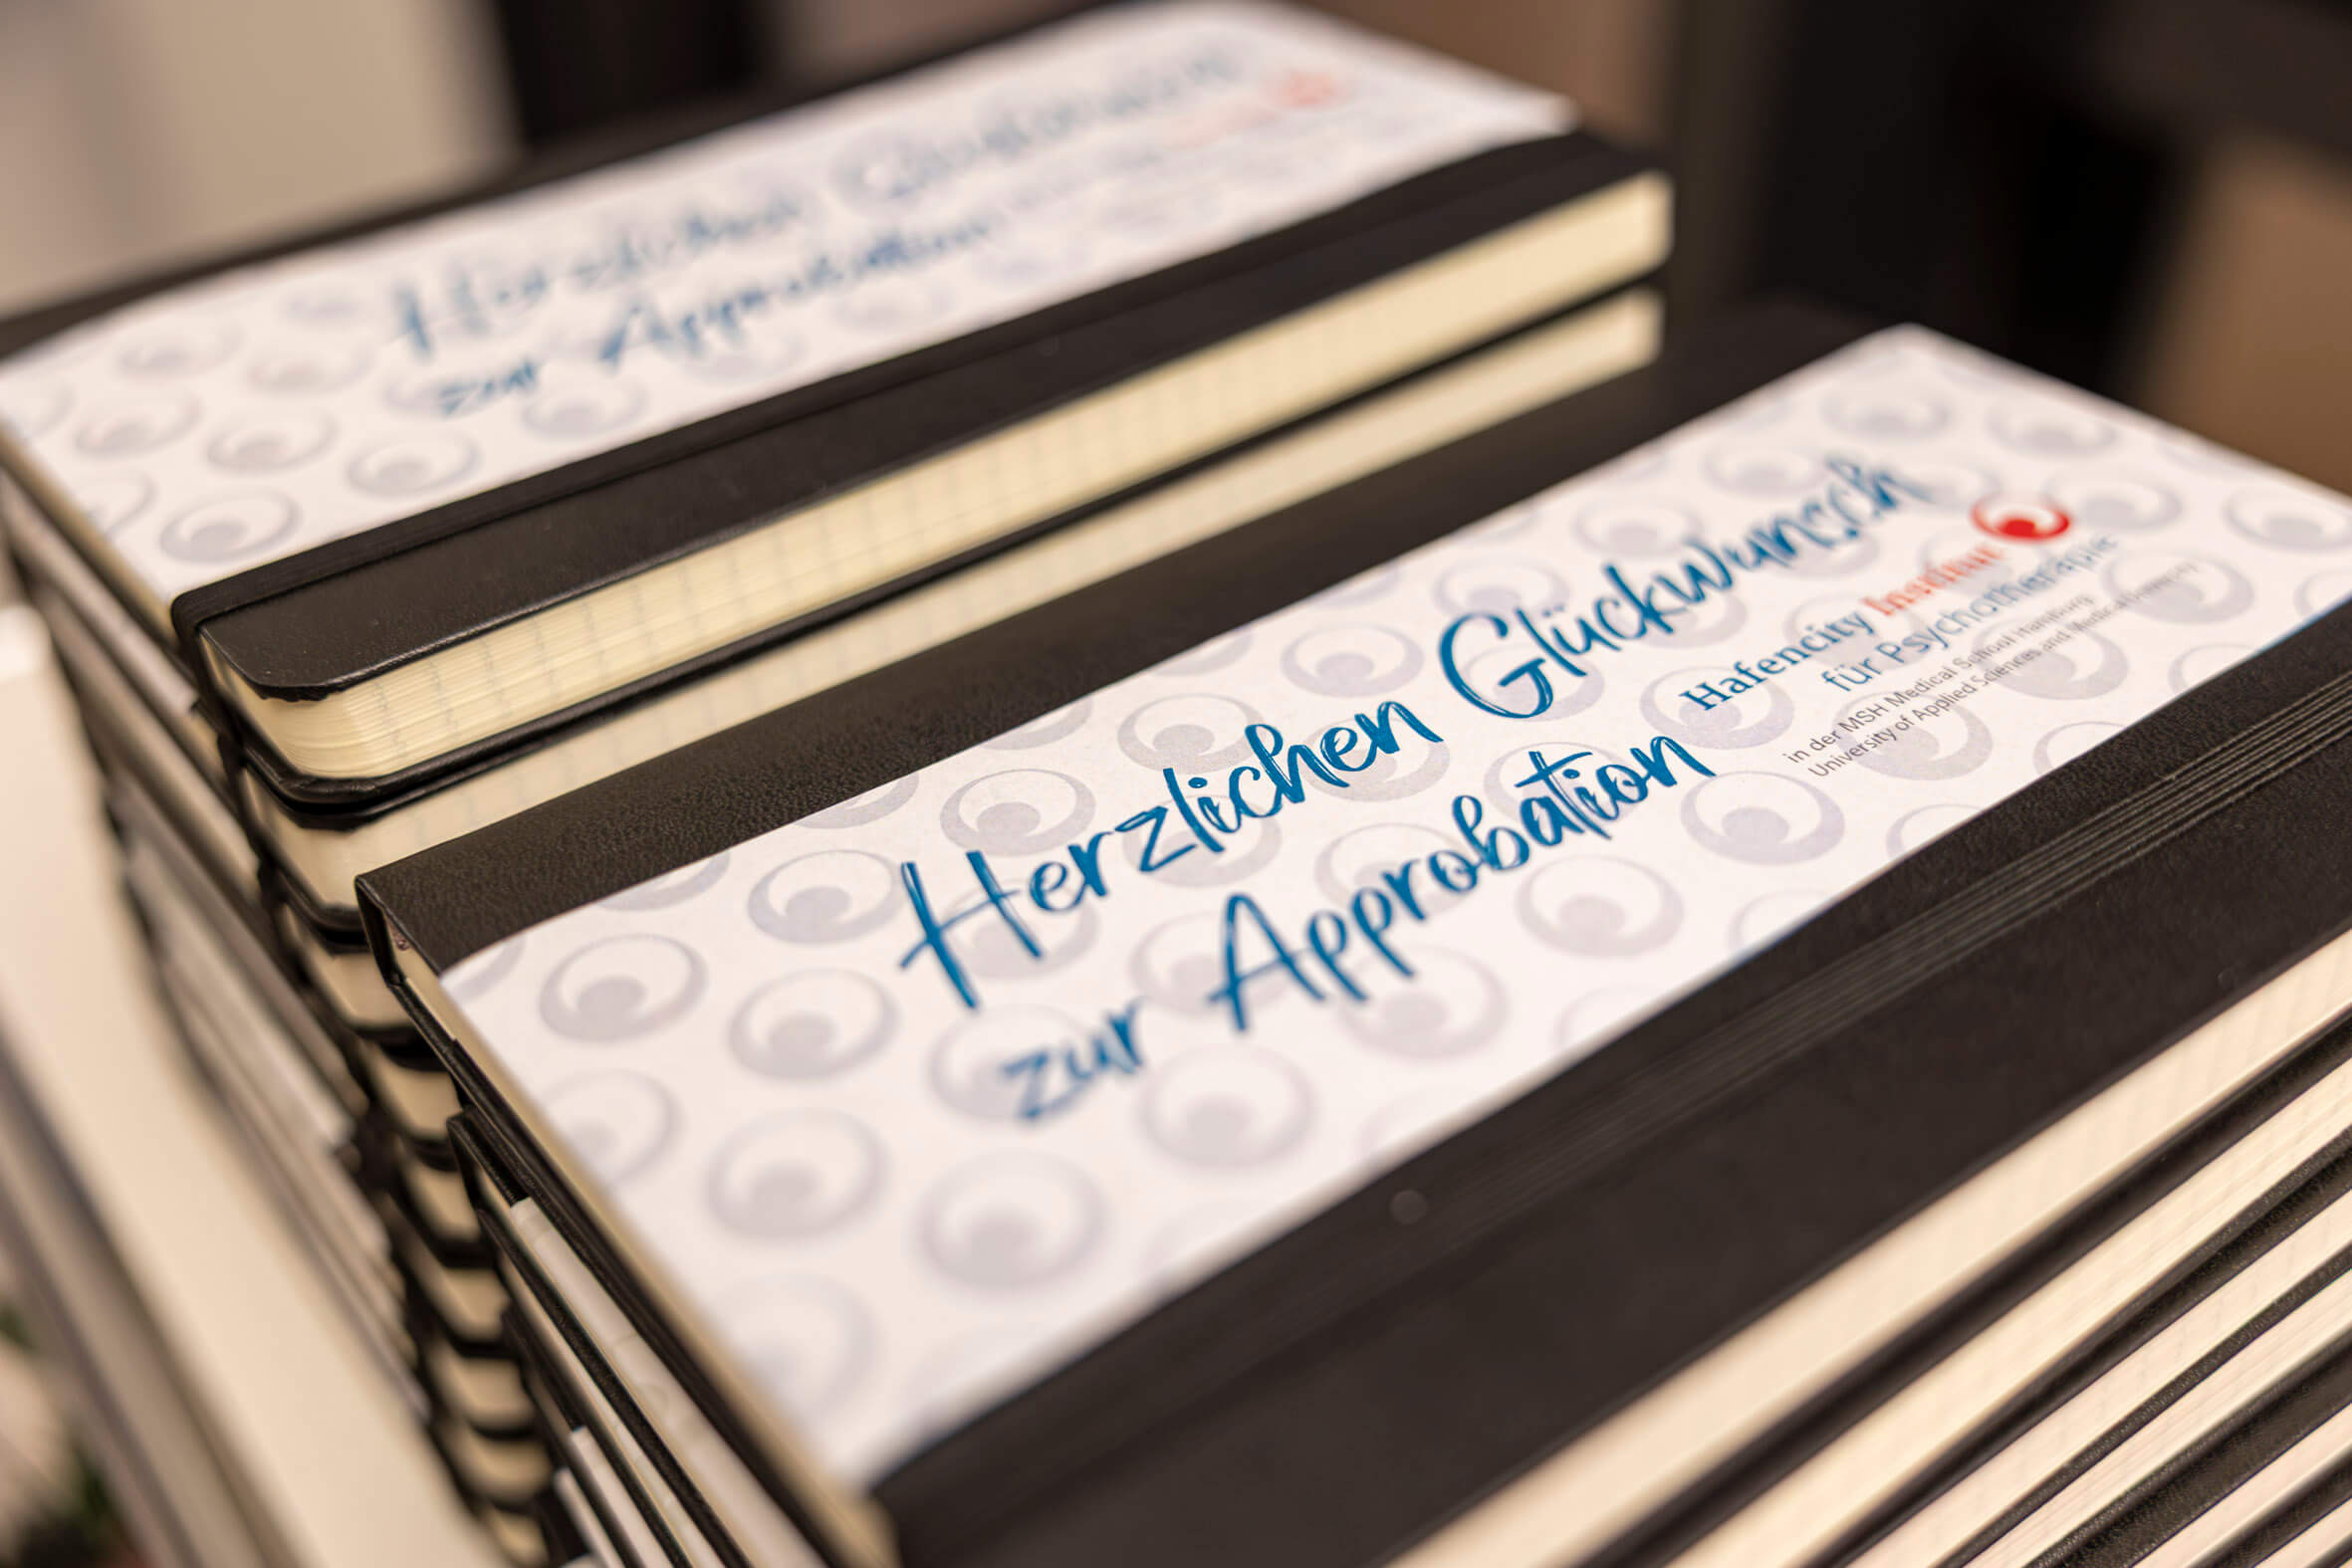 Herzlichen Glückwunsch
zur Approbation
Herzlichen Glückwunsch
zur Approbation
Hafencity Institut
für Psychotherapie
in der MSH Medical School Hamburg
University of Applied Sciences and Medical University